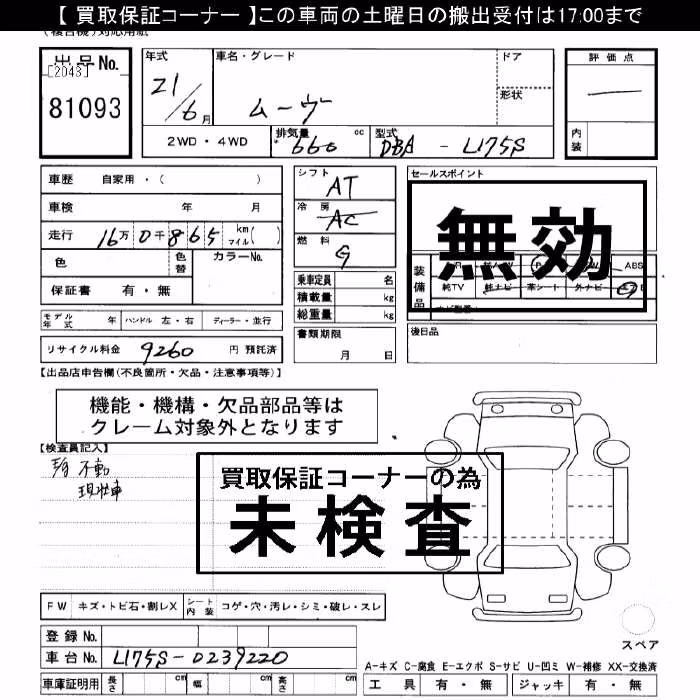 【 買取保証コーナー 】この車両の土曜日の搬出受付は17:00まで
(複合機)対応用紙
出品No.
[2043]
81093
年式
21/6月
車名・グレード
ムーヴ
ドア
形状
評価点
内装
2WD・4WD
排気量 660 cc
型式 DBA - L175S
車歴 自家用・( )
車検 年 月
走行 16万0千865 km マイル( )
色 色替 カラーNo.
保証書 有・無
モデル年式 年 ハンドル 左・右 ディーラー・並行
リサイクル料金 9260 円 預託済
シフト AT
冷房 AC
燃料 G
乗車定員 名
積載量 kg
総重量 kg
書類期限
月 日
セールスポイント
無効
装備品
ABS
純TV 純ナビ 革シート 外ナビ
後日品
【出品店申告欄(不良箇所・欠品・注意事項等)】
機能・機構・欠品部品等は
クレーム対象外となります
【検査員記入】
不動
現状車
買取保証コーナーの為
未検査
FW キズ・トビ石・割レX シート内装 コゲ・穴・汚レ・シミ・破レ・スレ
登録No.
車台No. L175S-0239220
車庫証明用 長さ cm 幅 cm 高さ cm
スペア
A-キズ C-腐食 E-エクボ S-サビ U-凹ミ W-補修 XX-交換済
工具 有・無 ジャッキ 有・無